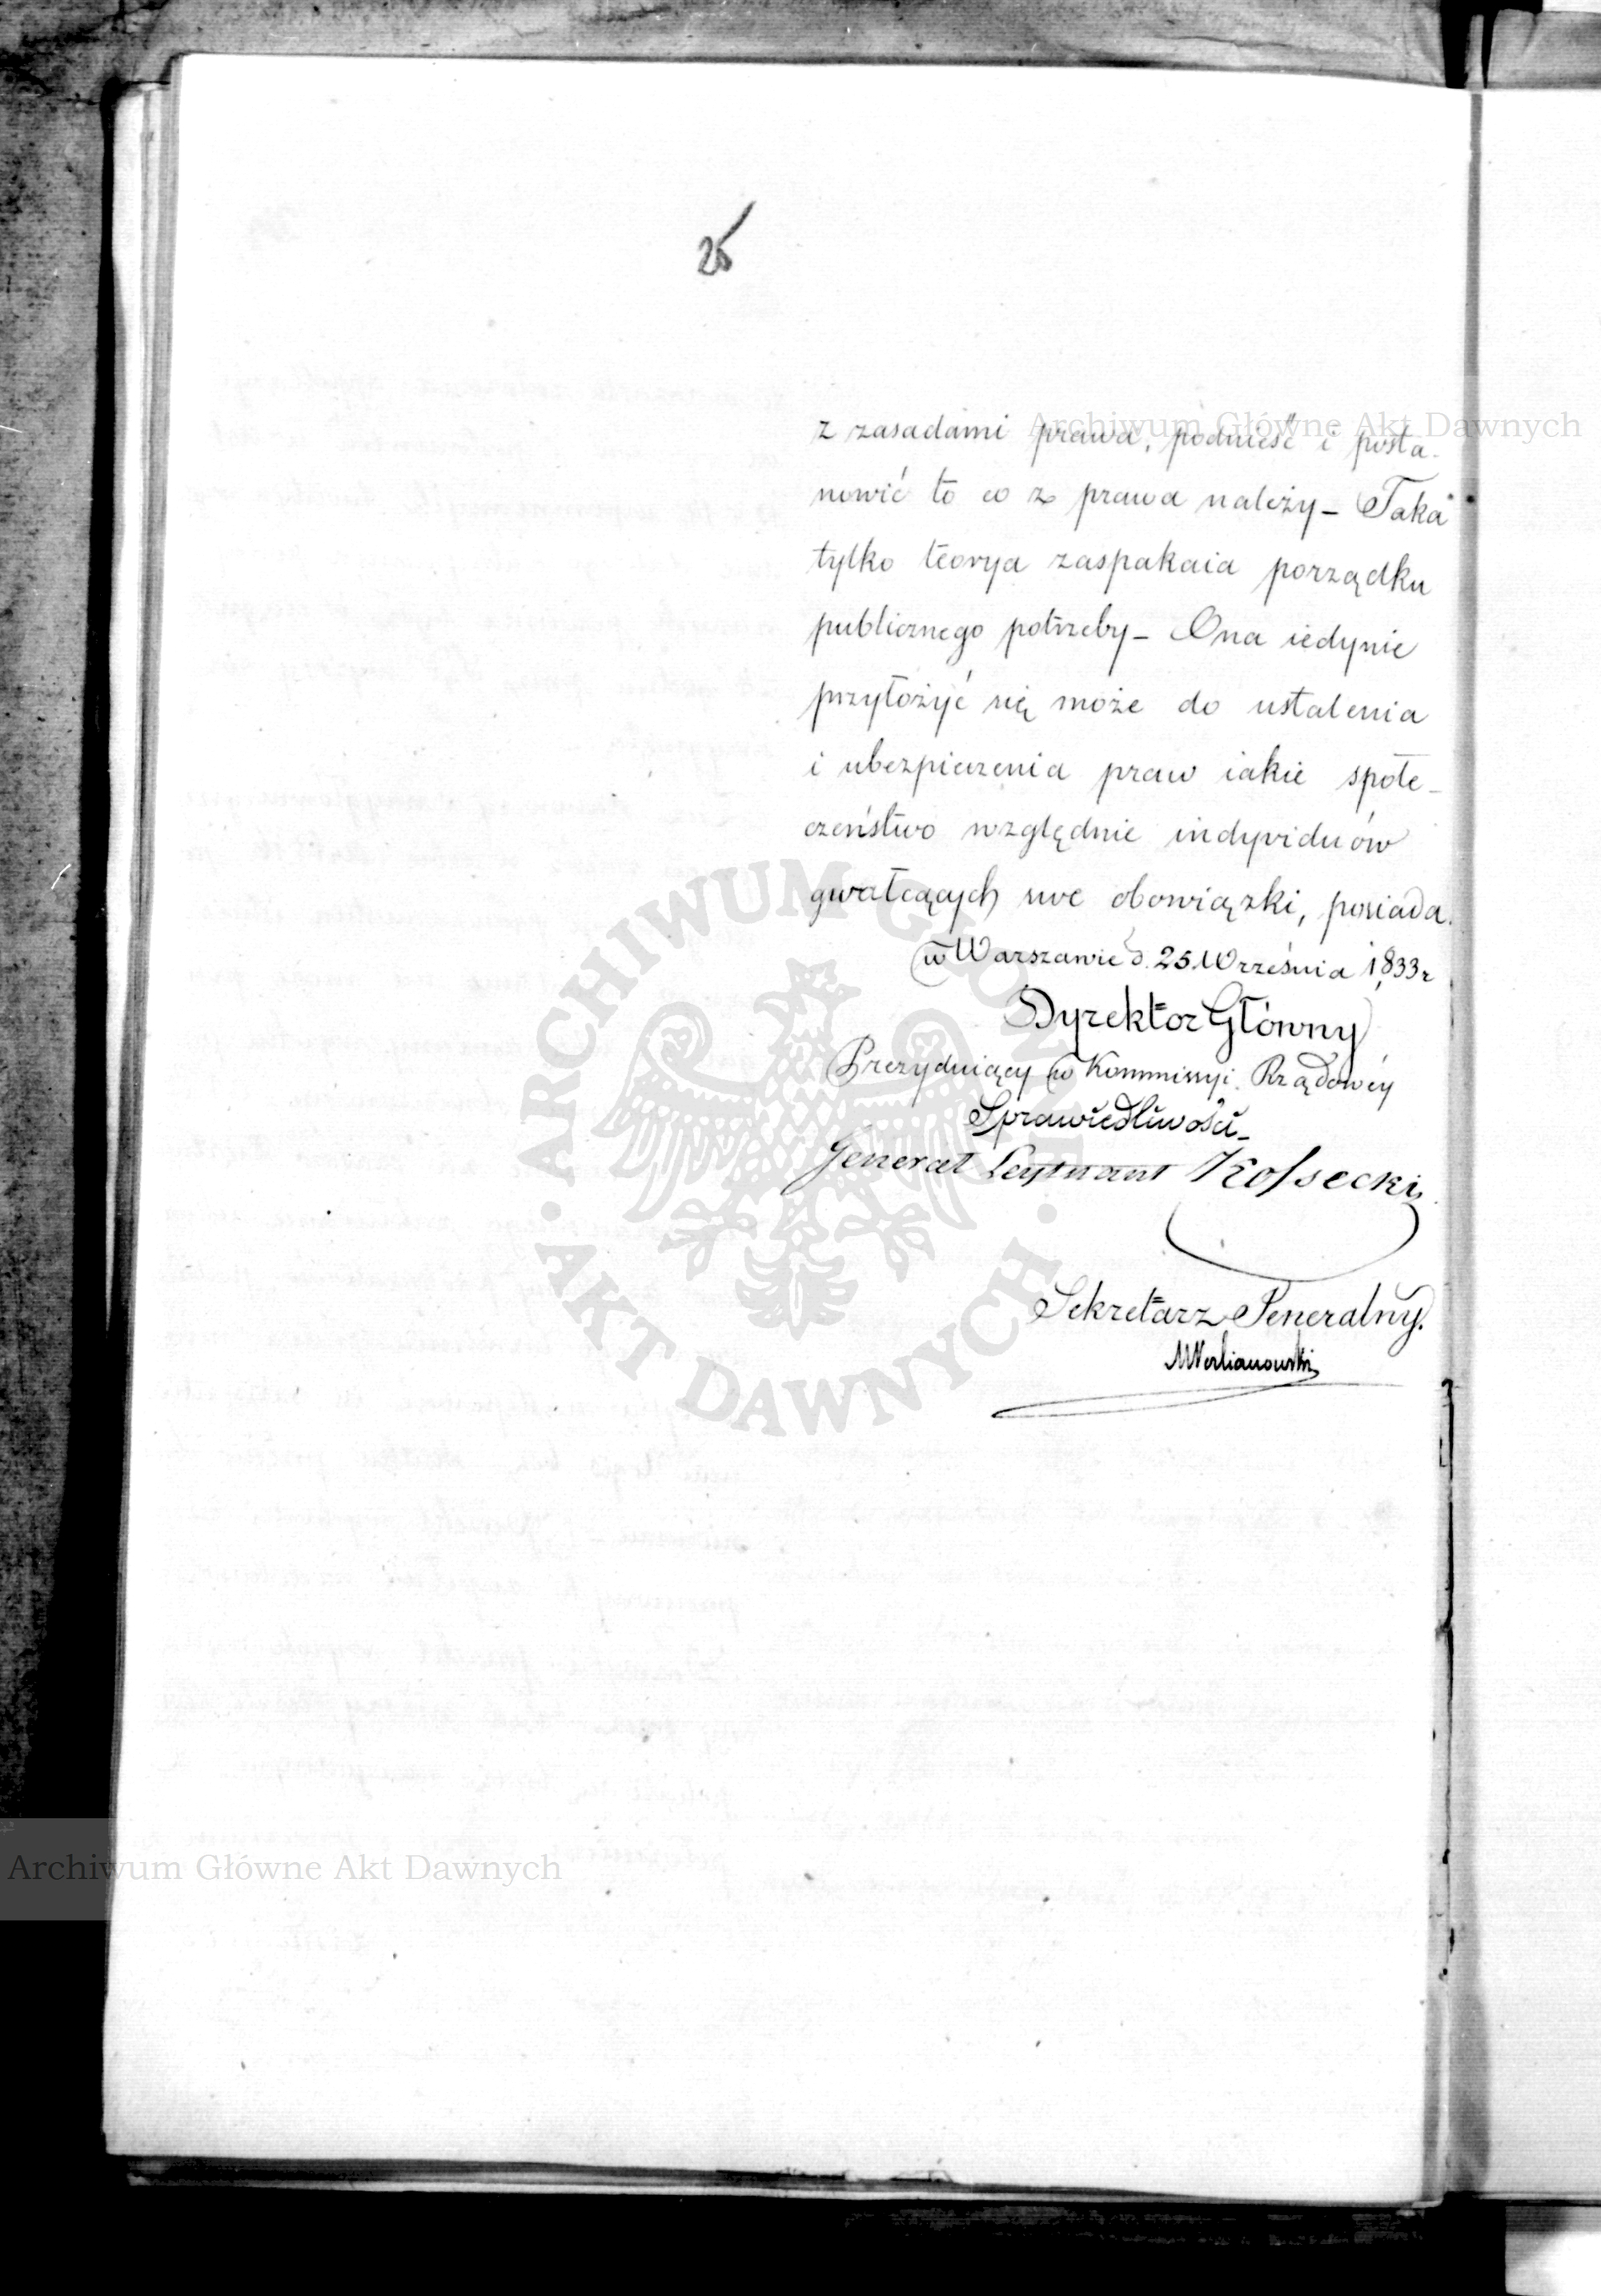 25
z zasadami prawa, podnieść i posta-
nowić to co z prawa należy – Taka
tylko teorya zaspakaia porządku
publicznego potrzeby – Ona iedynie
przyłożyć się może do ustalenia
i ubezpieczenia praw iakie społe-
czeństwo względnie indywiduów
gwałcących swe obowiązki, posiada.
w Warszawie d. 25 Września 1833 r
Dyrektor Główny
Prezyduiący w Kommissyi Rządowéy
Sprawiedliwości –
Generał Leytnant Kossecki
Sekretarz Generalny.
Archiwum Główne Akt Dawnych
ARCHIWUM GŁÓWNE
AKT DAWNYCH
Archiwum Główne Akt Dawnych